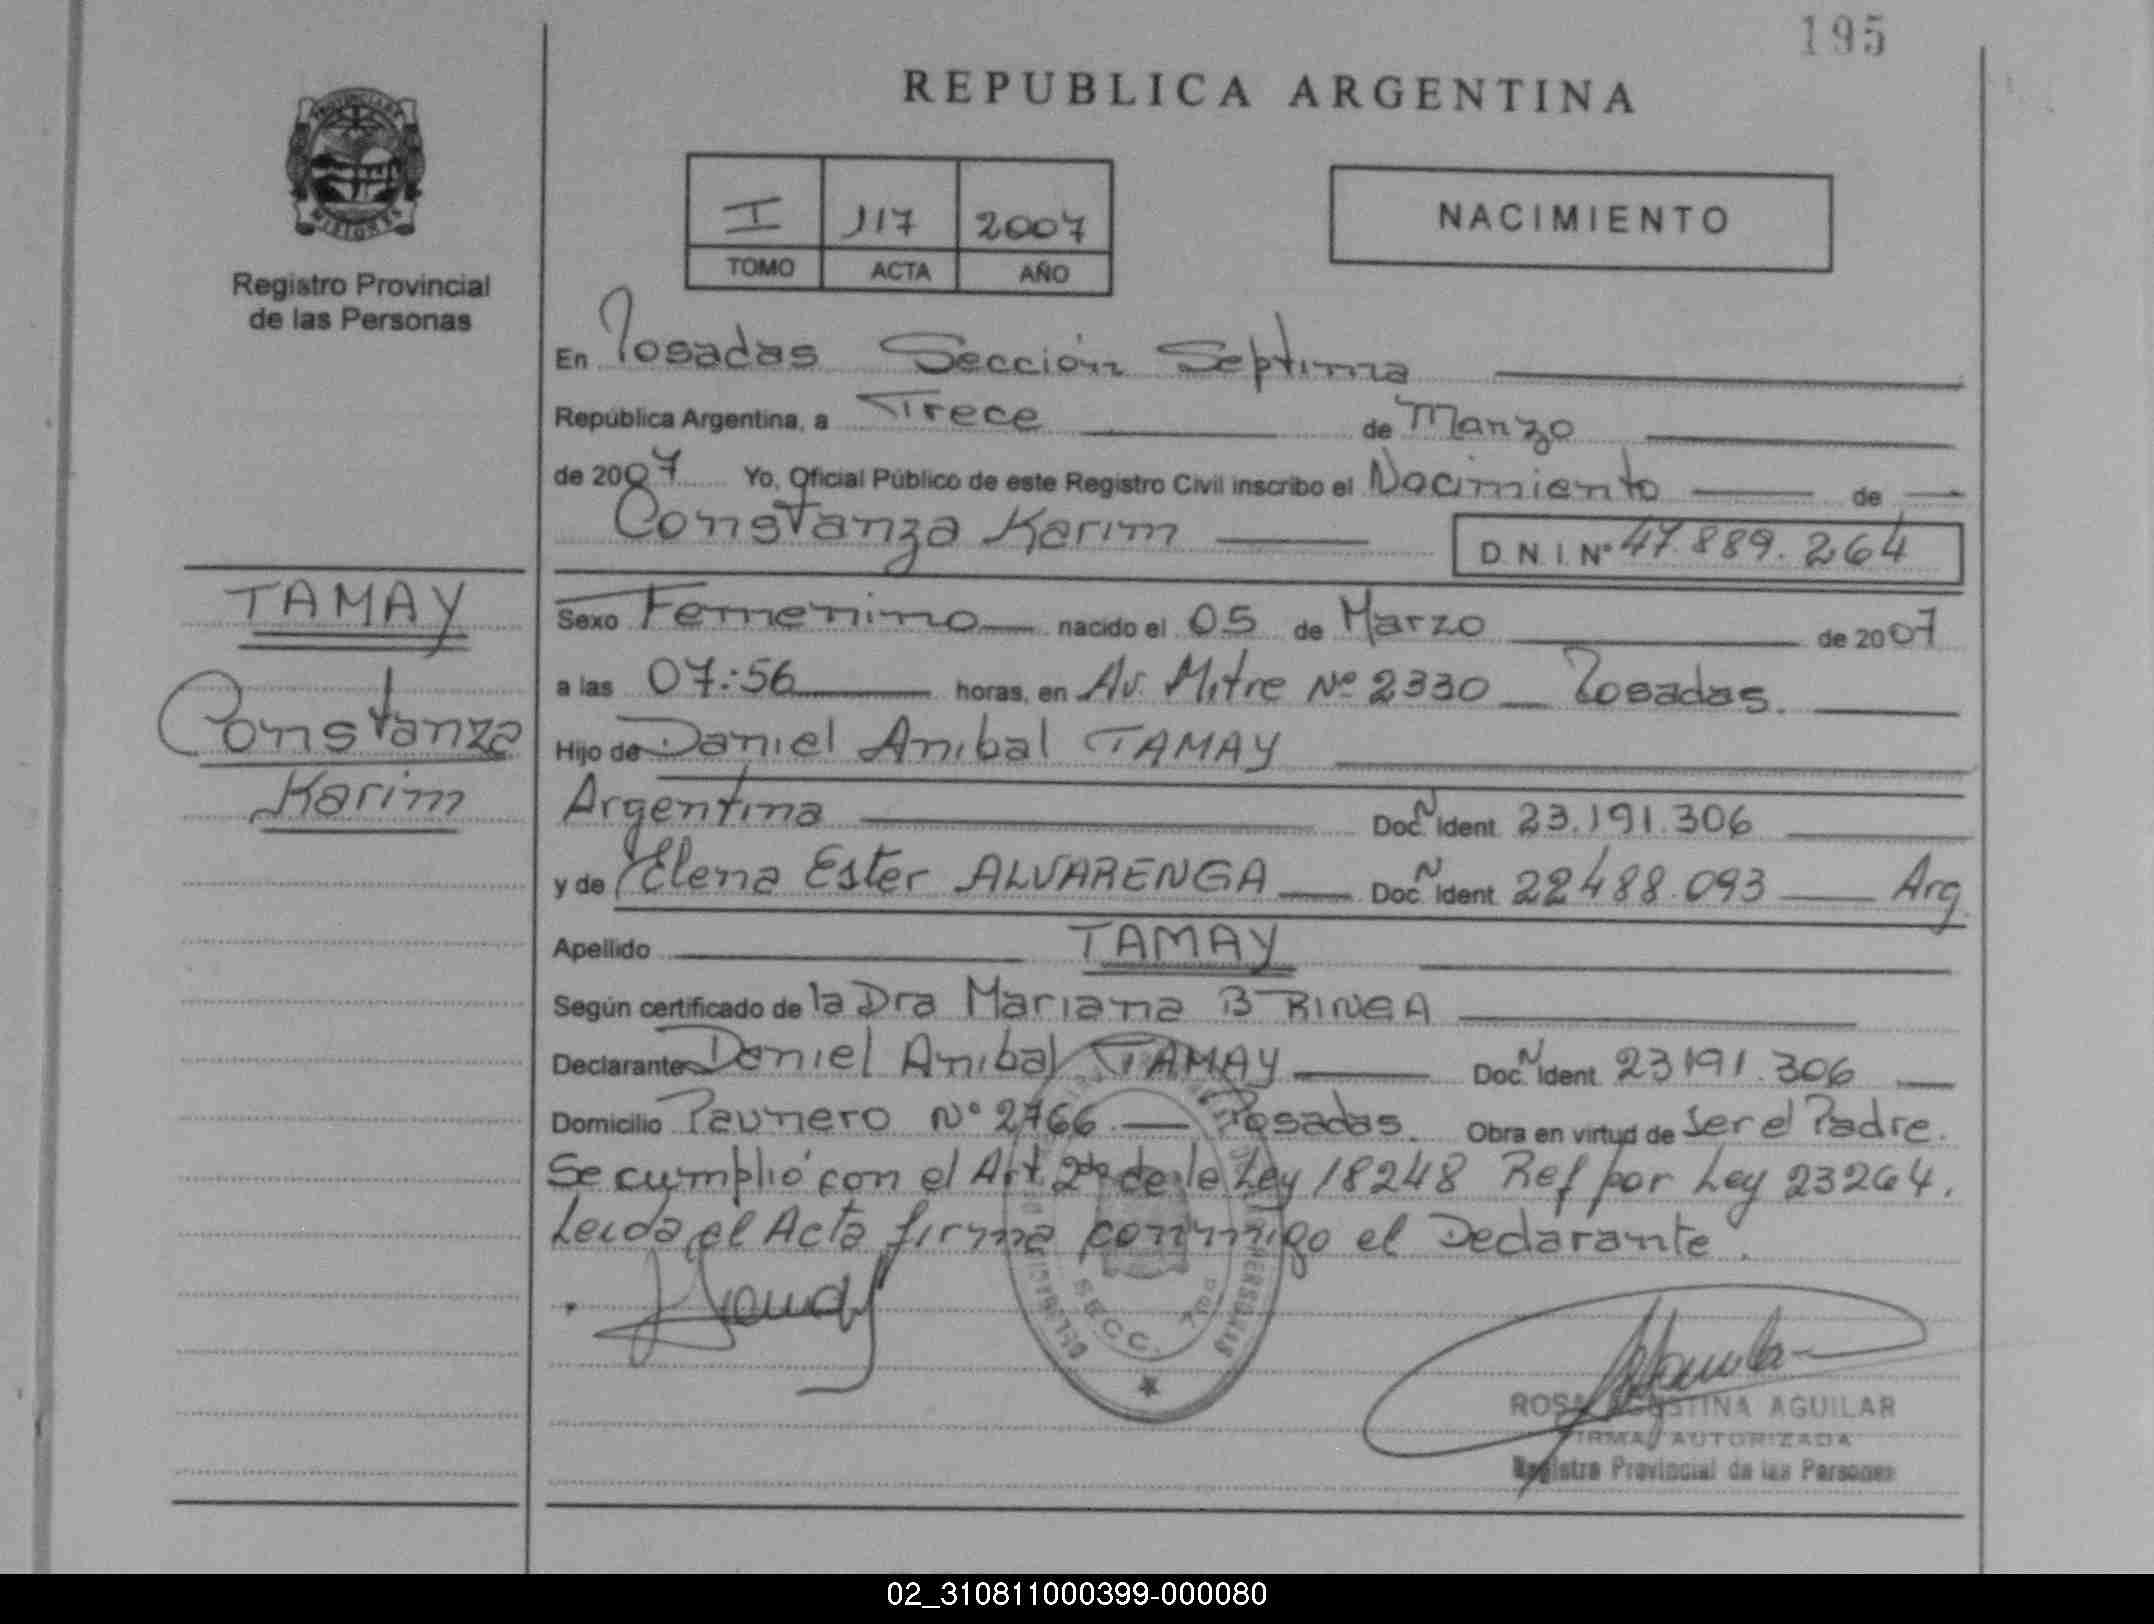 195
REPUBLICA ARGENTINA
PROVINCIA DE
MISIONES
Registro Provincial
de las Personas
I 117 2007
TOMO ACTA AÑO
NACIMIENTO
En Posadas Sección Septima
República Argentina, a Trece de Marzo
de 2007 Yo, Oficial Público de este Registro Civil inscribo el Nacimiento de
Constanza Karim D.N.I. Nº 47.889.264
TAMAY
Constanza
Karim
Sexo Femenino nacido el 05 de Marzo de 2007
a las 07:56 horas, en Av. Mitre Nº 2330 Posadas.
Hijo de Daniel Anibal TAMAY
Argentina Doc. N Ident. 23.191.306
y de Elena Ester ALVARENGA Doc. N Ident. 22488.093 Arg.
Apellido TAMAY
Según certificado de la Dra Mariana B
Declarante Daniel Anibal TAMAY Doc. N Ident. 23191.306
Domicilio Paunero Nº 2766 Posadas. Obra en virtud de Ser el Padre.
Se cumplió con el Art. 2do de la Ley 18248 Ref por Ley 23264.
Leida el Acta firma conmigo el Declarante.
SECC. 7ma
ROSA AGUSTINA AGUILAR
FIRMA AUTORIZADA
Registro Provincial de las Personas
02_310811000399-000080